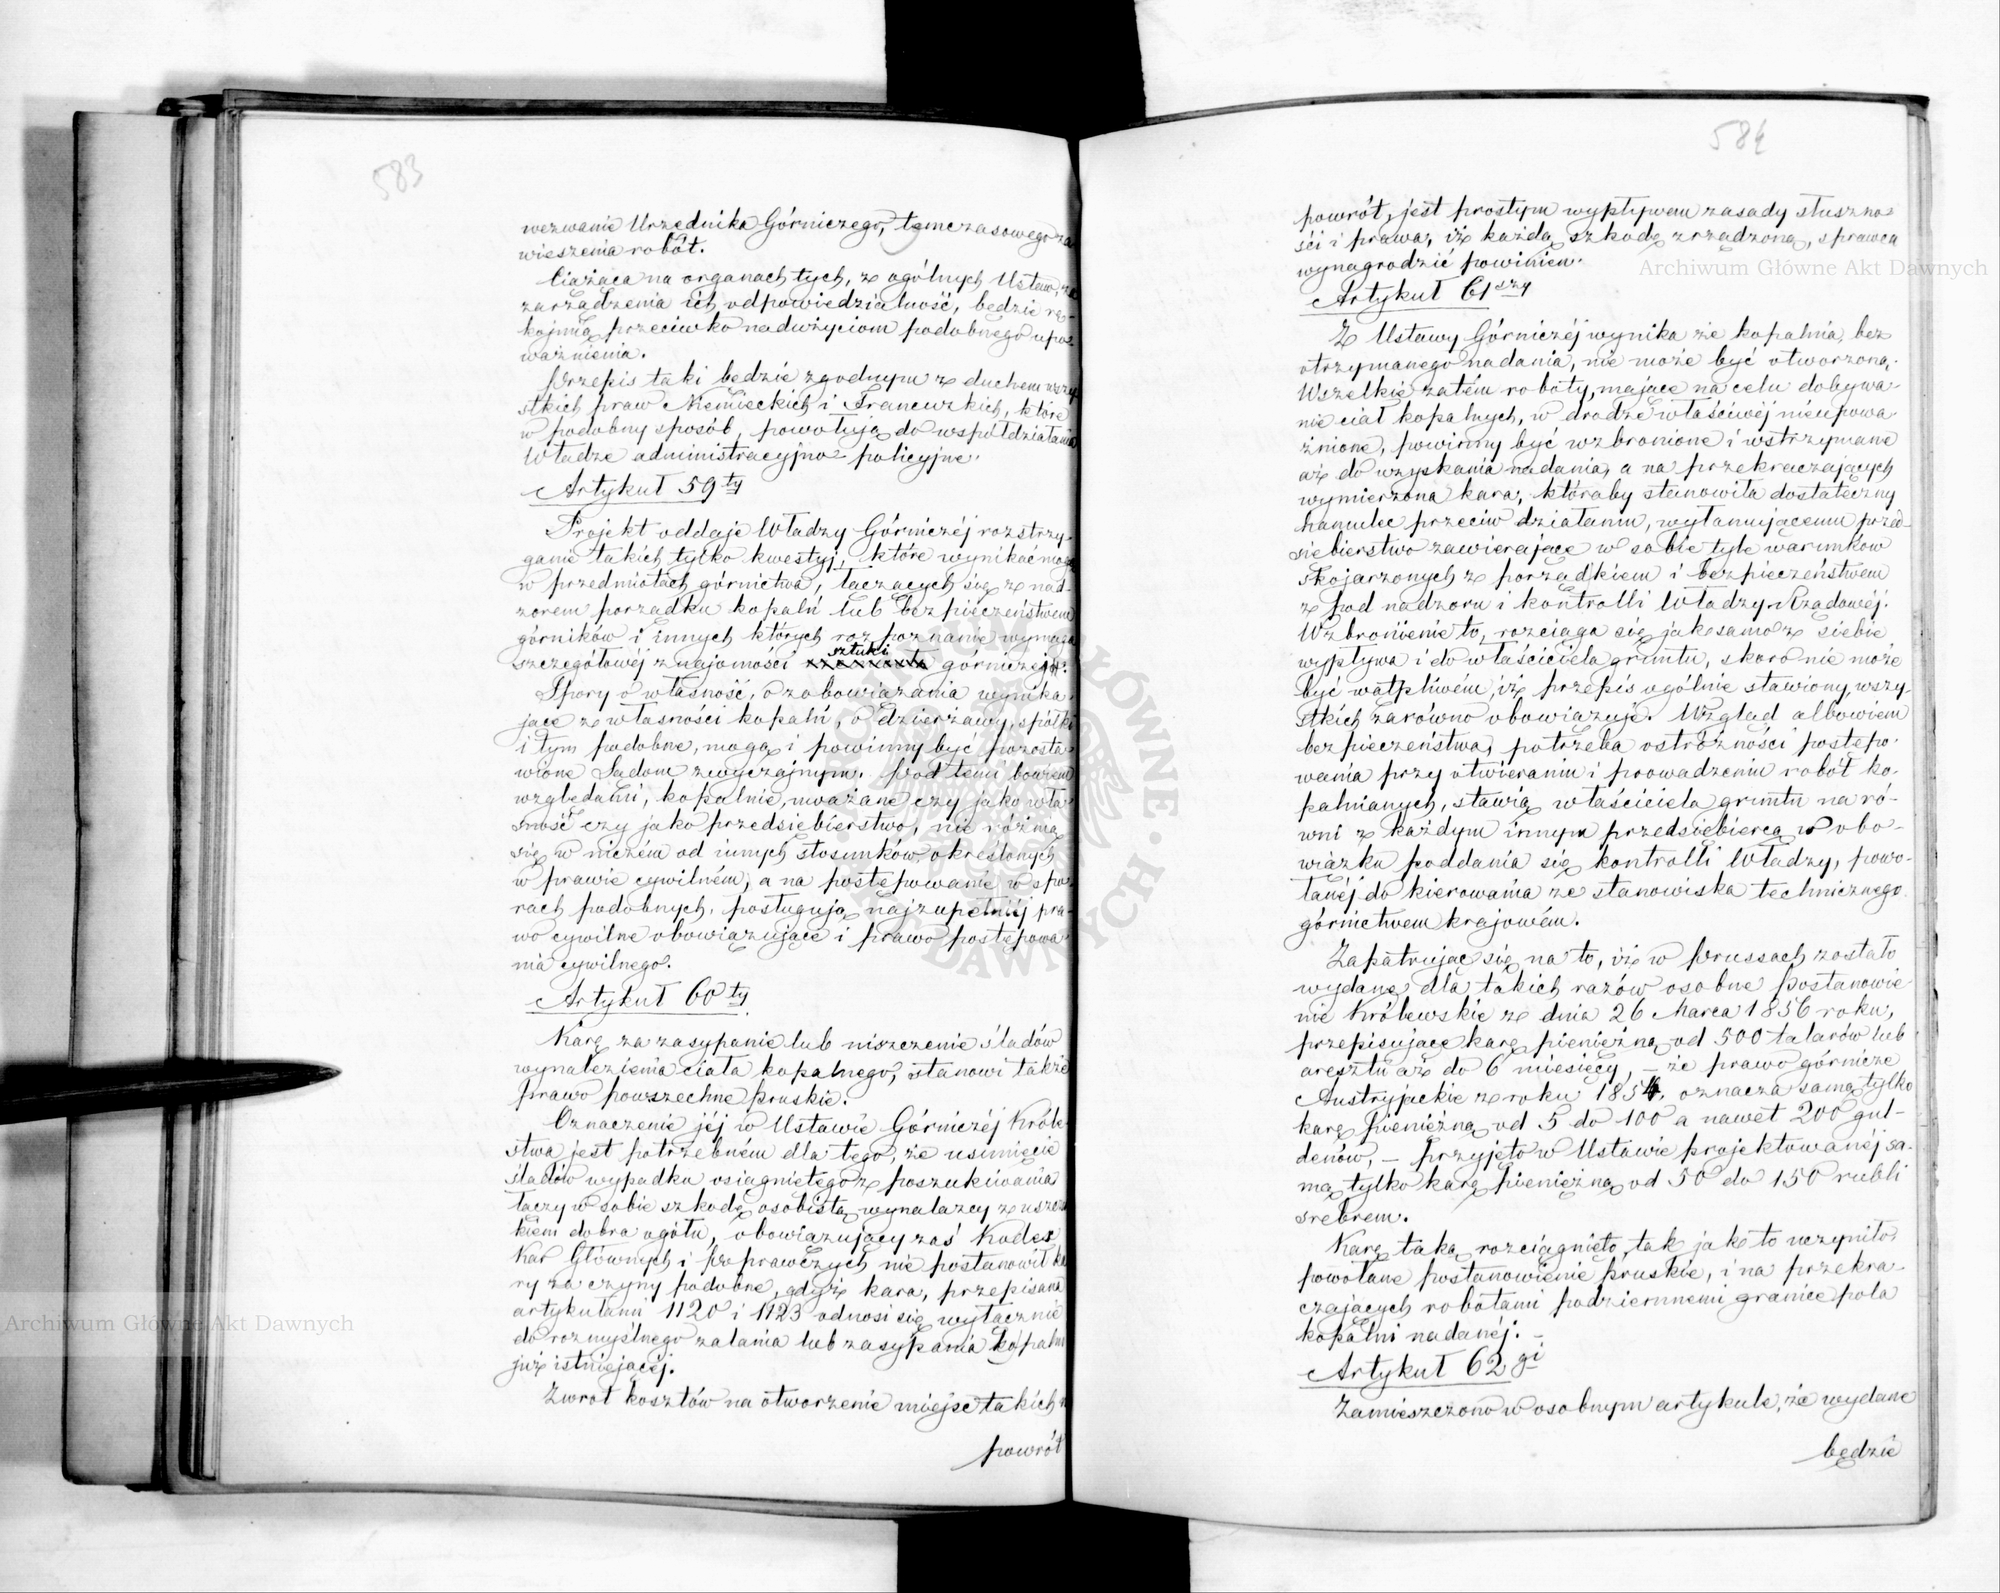 583
wezwanie Urzędnika Górniczego, tymczasowego za
wieszenia robót.
Ciążąca na organach tych, z ogólnych Ustaw, za
zarządzenia ich odpowiedzialność, będzie rę-
kojmią przeciwko nadużyciom podobnego upo-
ważnienia.
Przepis taki będzie zgodnym z duchem wszy
stkich praw Niemieckich i Francuzkich, które
w podobny sposób, powołują do współdziałania
Władze administracyjno-policyjne.
Artykuł 59ty
Projekt oddaje Władzy Górniczéj rozstrzy-
ganie takich tylko kwestyj, które wynikać mogą
w przedmiotach górnictwa, łączących się z nad-
zorem porządku kopalń lub bezpieczeństwem
górników i innych których rozpoznanie wymaga
szczegółowéj znajomości sztuki górniczéj.
Spory o własność, o zobowiązania wynika-
jące z własności kopalń, o dzierżawy, spółki
i tym podobne, mogą i powinny być pozosta-
wione Sądom zwyczajnym. Pod temi bowiem
względami, kopalnie, uważane czy jako wła-
sność czy jako przedsiebierstwo, nie różnią
się w niczém od innych stosunków określonych
w prawie cywilném, a na postępowanie w spo-
rach podobnych, posługują najzupełniéj pra-
wo cywilne obowiązujące i prawo postępowa-
nia cywilnego.
Artykuł 60ty
Karę za zasypanie lub niszczenie śladów
wynalezienia ciała kopalnego, stanowi także
prawo powszechne pruskie.
Oznaczenie jéj w Ustawie Górniczéj Króle-
stwa jest potrzebném dla tego, że usunięcie
śladów wypadku osiągniętego z poszukiwania
łączy w sobie szkodę osobistą wynalazcy z uszczer
kiem dobra ogółu, obowiązujący zaś Kodex
Kar Głównych i Poprawczych nie postanowił ka
ry za czyny podobne, gdyż kara, przepisana
artykułami 1120 i 1123 odnosi się wyłącznie
do rozmyślnego zalania lub zasypania kopalni
już istniejącéj.
Zwrot kosztów na otworzenie miejsc takich n
powrót
584
powrót, jest prostym wypływem zasady słuszno-
ści i prawa, iż każdą szkodę zrządzoną, sprawca
wynagrodzić powinien.
Artykuł 61szy
Z Ustawy Górniczéj wynika że kopalnia, bez
otrzymanego nadania, nie może być otworzoną.
Wszelkie zatém roboty, mające na celu dobywa-
nie ciał kopalnych, w drodze właściwéj nieupowa-
żnione, powinny być wzbronione i wstrzymane
aż do wzyskania nadania, a na przekraczających
wymierzona kara, któraby stanowiła dostateczny
hamulec przeciw działaniu, wyłamującemu przed-
siebierstwo zawierające w sobie tyle warunków
skojarzonych z porządkiem i bezpieczeństwem
z pod nadzoru i kontrolli Władzy Rządowéj.
Wzbronienie to, rozciąga się jak samo z siebie
wypływa i do właściciela gruntu, skoro nie może
być wątpliwém, iż przepis ogólnie stawiony, wszy-
stkich zarówno obowiązuje. Wzgląd albowiem
bezpieczeństwa, potrzeba ostrożności postępo-
wania przy otwieraniu i prowadzeniu robót ko-
palnianych, stawią właściciela gruntu na ró-
wni z każdym innym przedsiębiercą w obo-
wiązku poddania się kontrolli Władzy, powo-
łanéj do kierowania ze stanowiska technicznego
górnictwem krajowém.
Zapatrując się na to, iż w Prussach zostało
wydane dla takich razów osobne postanowie
nie Królewskie z dnia 26 Marca 1856 roku,
przepisujące karę pieniężną od 500 talarów lub
aresztu aż do 6 miesięcy, – że prawo górnicze
Austryjackie z roku 1854. oznacza samą tylko
karę pieniężną od 5 do 100 a nawet 200 gul-
denów, – przyjęto w Ustawie projektowanéj sa-
mą tylko karę pieniężną od 50 do 150 rubli
srebrem.
Karę taką rozciągnięto, tak jak to uczyniło
powołane postanowienie pruskie, i na przekra-
czających robotami podziemnemi granice pola
kopalni nadanéj. –
Artykuł 62gi
Zamieszczono w osobnym artykule, że wydane
będzie
Archiwum Główne Akt Dawnych
Archiwum Główne Akt Dawnych